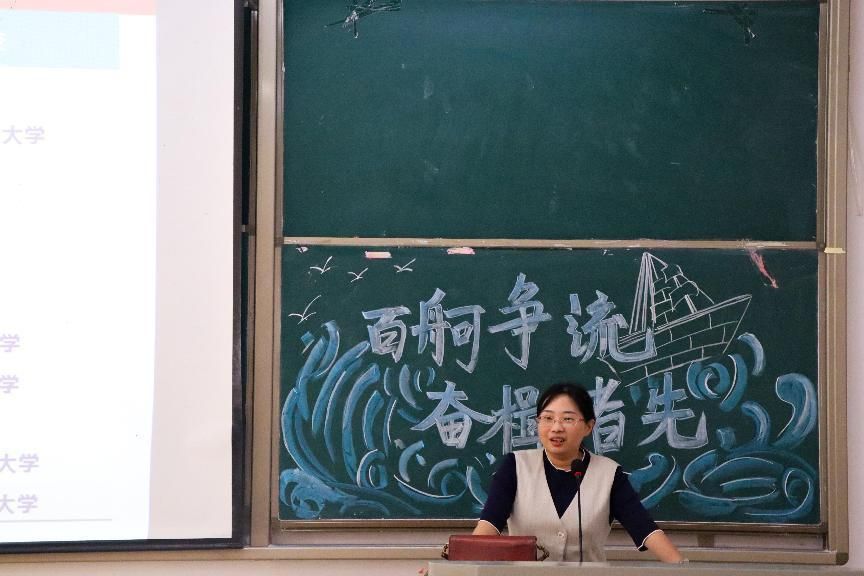 大学
学
学
大学
大学
百舸争流
奋楫者先